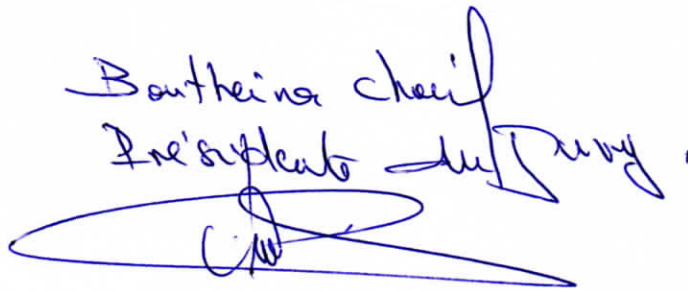 Boutheina charif
Présidente du Jury.